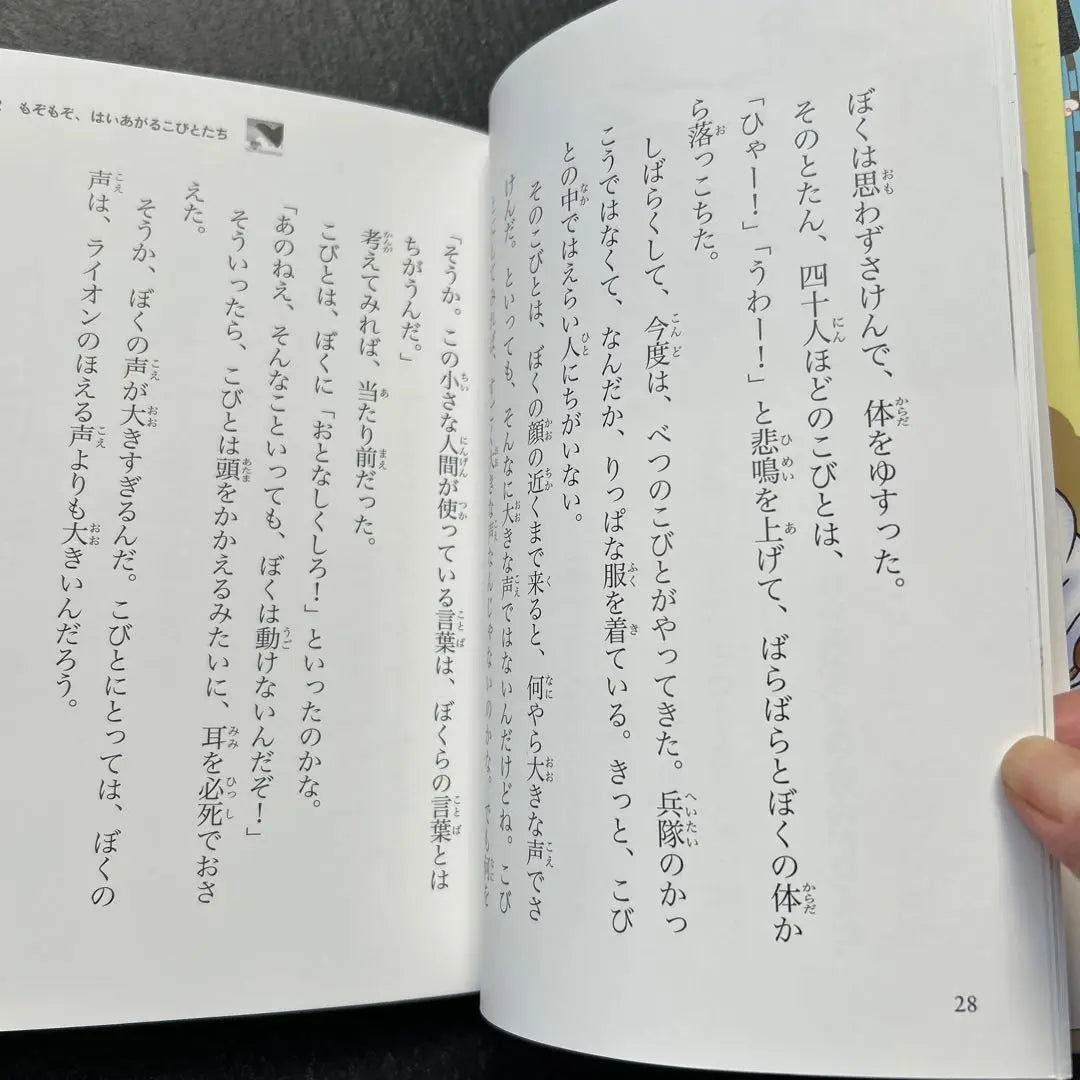 ぼくは思わずさけんで、体をゆすった。
そのとたん、四十人ほどのこびとは、
「ひゃー！」「うわー！」と悲鳴を上げて、ばらばらとぼくの体か
ら落っこちた。
しばらくして、今度は、べつのこびとがやってきた。兵隊のかっ
こうではなくて、なんだか、りっぱな服を着ている。きっと、こび
との中ではえらい人にちがいない。
そのこびとは、ぼくの顔の近くまで来ると、何やら大きな声でさ
けんだ。といっても、そんなに大きな声ではないんだけどね。こび
大きな声なんじゃないのかな。でも何を
28
もぞもぞ、はいあがるこびとたち
「そうか。この小さな人間が使っている言葉は、ぼくらの言葉とは
ちがうんだ。」
考えてみれば、当たり前だった。
こびとは、ぼくに「おとなしくしろ！」といったのかな。
「あのねえ、そんなこといっても、ぼくは動けないんだぞ！」
そういったら、こびとは頭をかかえるみたいに、耳を必死でおさ
えた。
そうか、ぼくの声が大きすぎるんだ。こびとにとっては、ぼくの
声は、ライオンのほえる声よりも大きいんだろう。